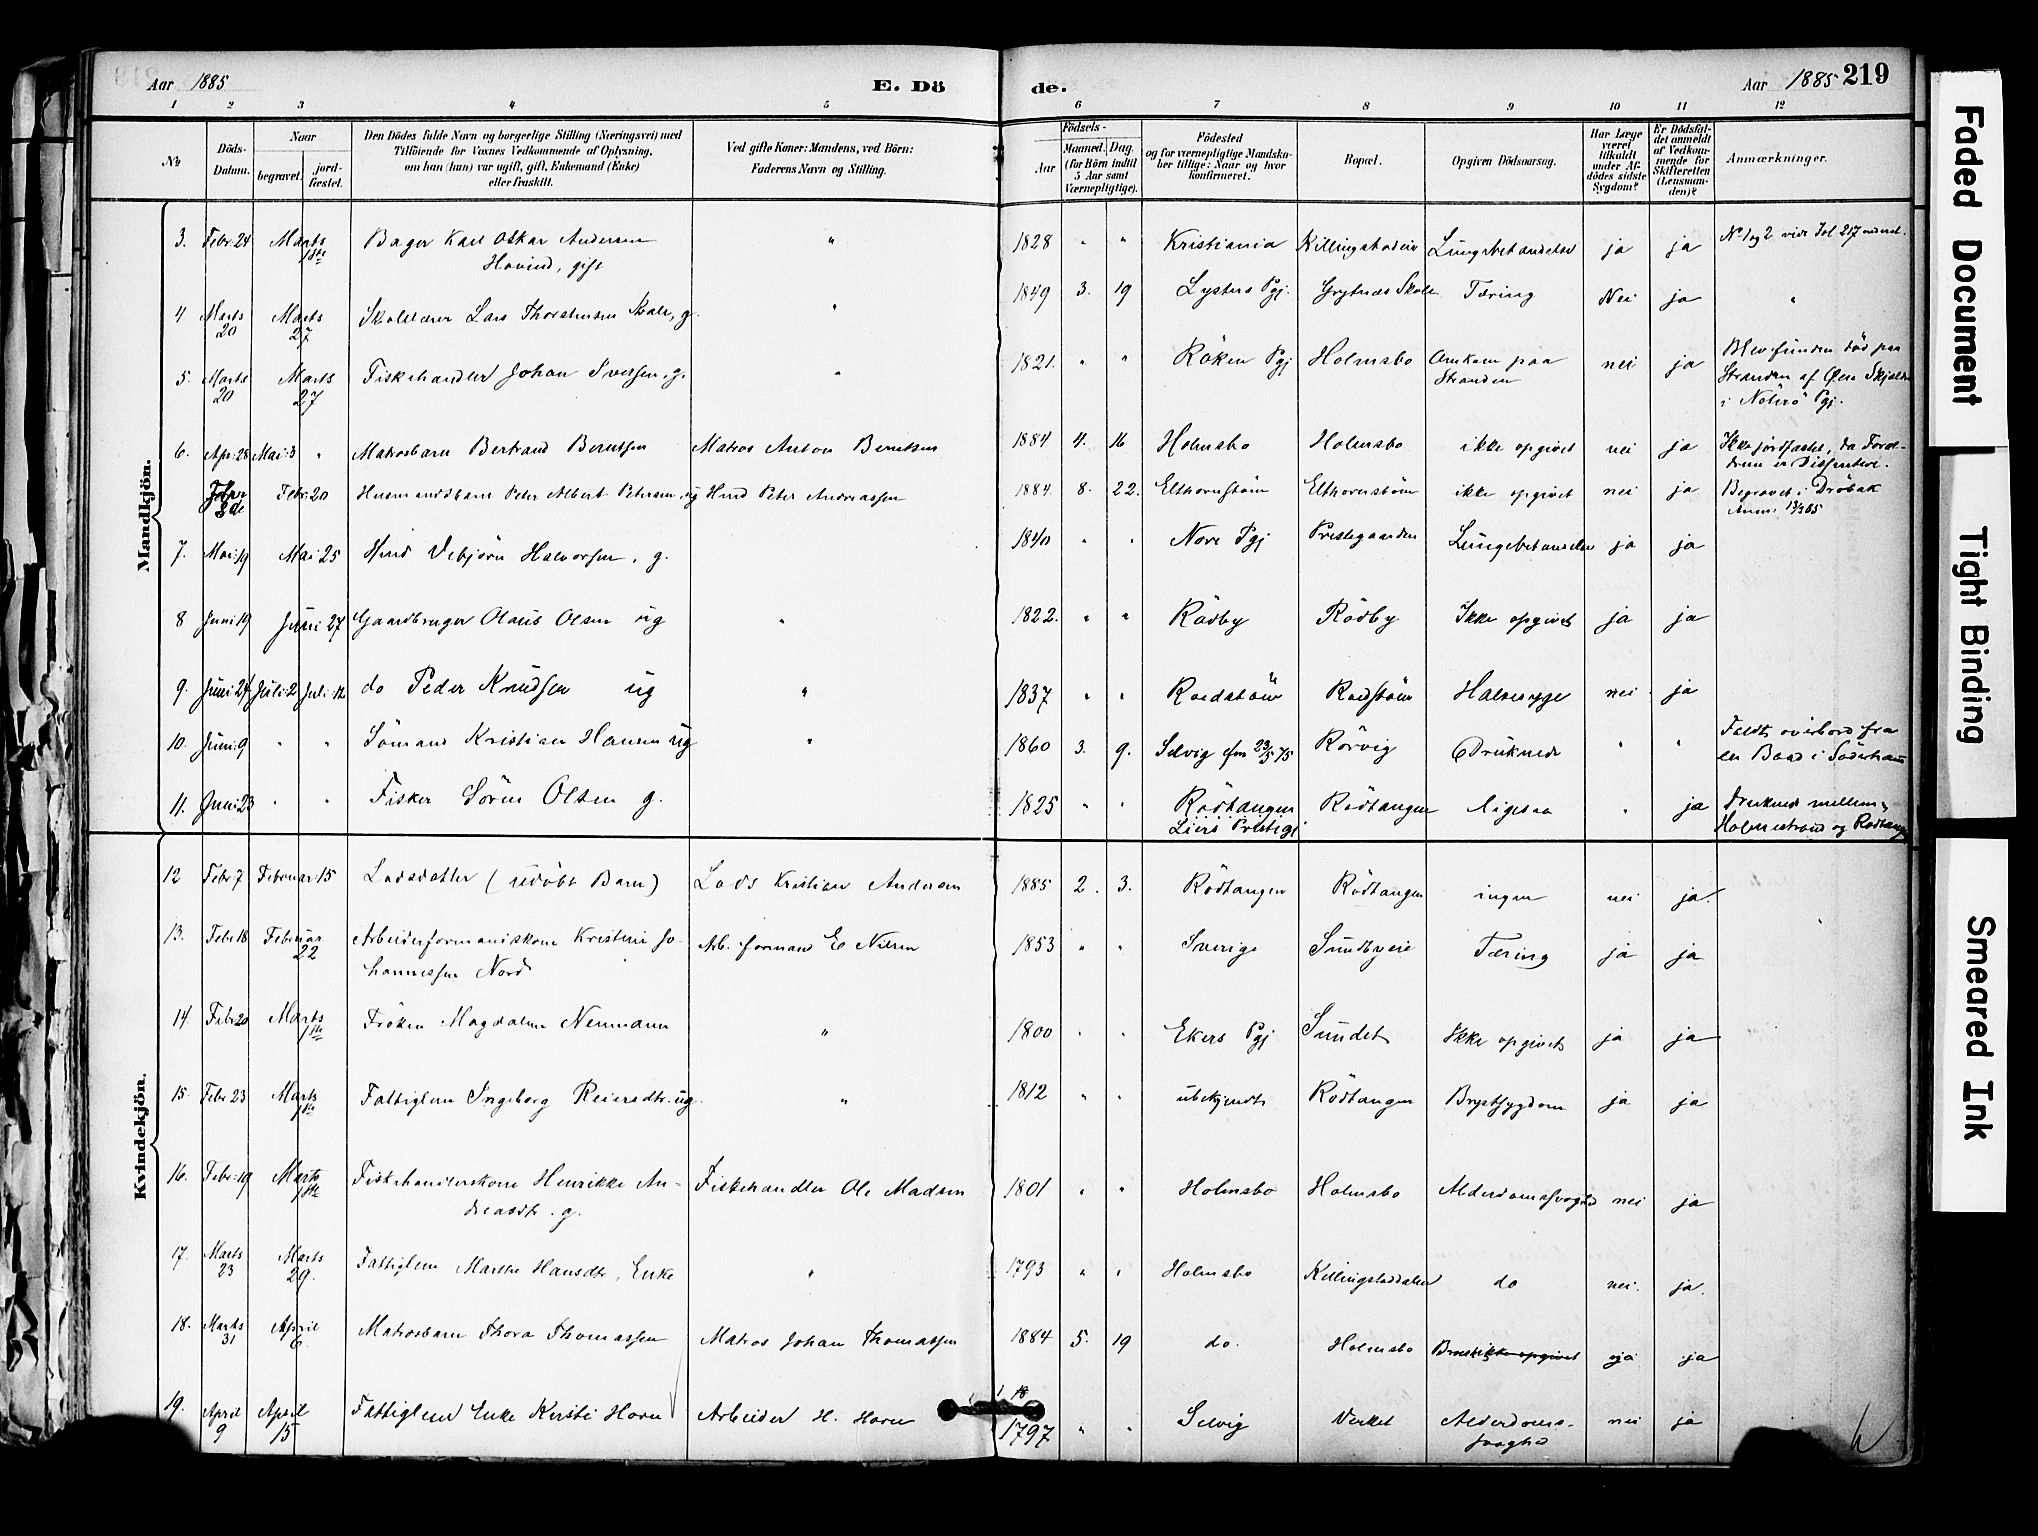 Aar 1885
E. Dö
de.
Aar 1885 219
1 2 3 4 5 6 7 8 9 10 11 12
No
Döds-
Datum.
Naar
begravet.
jord-
fæstet.
Den Dödes fulde Navn og borgerlige Stilling (Næringsvei) med
Tilföiende for Voxnes Vedkommende af Oplysning,
om han (hun) var ugift, gift, Enkemand (Enke)
eller fraskilt.
Ved gifte Koner: Mandens, ved Börn:
Faderens Navn og Stilling.
Födsels-
Aar
Maaned. Dag.
(for Börn indtil
5 Aar samt
Værnepligtige).
Födested
og for værnepligtige Mandska-
ber tillige: Naar og hvor
konfirmeret.
Bopæl.
Opgiven Dödsaarsag.
Har Læge
været
tilkaldt
under Af-
dödes sidste
Sygdom?
Er Dödsfal-
det anmeldt
af Vedkom-
mende for
Skifteretten
(Lensman-
den)?
Anmærkninger.
Mandkjön.
3. Febr: 24 Marts 1ste Bager Karl Oskar Andersen " 1828 " " Kristiania Lungebetændelse ja ja No 1 og 2 vide Fol 217
Hovind, gift
4 Marts 20 Marts 27 Lars Thorstensen g. " 1849 3. 19 Lysters Pgj. Grytnæs Skole Tæring Nei ja "
5. Marts 20 Marts 27 Fiskehandler Johan Iversen, g. " 1821. " " Röken Pgj Holmsbo Omkom paa Stranden nei ja Blev funden död paa
Stranden af
i Nöterö Pgj.
6. Apr: 28 Mai: 3 " Matrosbarn Bertrand Berntsen Matros Anton Berntsen 1884 4. 16 Holmsbo Holmsbo ikke opgivet nei ja Ikke jordfæstet, da Foræl-
drene er Dissentere.
Febr: 20 Husmandsbarn Peter Albert Petersen, ug Husmd Peter Andreassen 1884. 8. 22. ikke opgivet nei ja Begravet i Dröbak
7. Mai: 19 Mai 25 Husmd Vebjörn Halvorsen, g. 1840 " " Nore Pgj Prestegaarden Lungebetændelse ja ja
8 Juni 19 Juni 27 Gaardbruger Olaus Olsen ug " 1822. " " Rödby Rödby Ikke opgivet ja ja
9. Juni 24 Juli 2 Juli 12 do Peder Knudsen ug " 1837 " " Halssyge nei ja
10. Juni: 9 " " Sömand Kristian Hansen ug " 1860 3. 9. Selvig 23/5 75 Rörvig Druknede " " Faldt overbord fra
en Baad i Söderhavn
11. Juni: 23 " " Fisker Sören Olsen g. 1825 " " Rödtangen Rödtangen ligesaa " ja Druknede mellem
Liers Prestegj Holmestrand og Rödtangen
Kvindekjön.
12 Febr 7 Februar 15 Lodsdatter (udöbt Barn) Lods Kristian Andersen 1885 2. 3. Rödtangen Rödtangen ingen nei ja.
13. Febr 18 Februar 22 Arbeiderformandskone Kristine Jo- Arb. formand E Nilsen 1853 " " Sverige Sundbyeie Tæring ja ja
hannessen Nord
14. Febr 20 Marts 1ste Fröken Magdalene Neumann " 1800 " " Ekers Pgj Sundet Ikke opgivet ja ja
15. Febr 23 Marts 1ste Fattiglem Ingeborg Reiersdtr. ug. " 1812 " " ubekjendt Rödtangen Brystsygdom ja ja
16. Febr: 19 Marts 1ste Fiskehandlerskone Henrikke An- Fiskehandler Ole Madsen 1801 " " Holmsbo Holmsbo Alderdomssvaghed nei ja
dreasdtr. g.
17. Marts 23 Marts 29. Fattiglem Marthe Hansdtr, Enke " 1793 " " Holmsbo do nei. ja.
18. Marts 31 April 6 Matrosbarn Thora Thomassen Matros Johan Thomassen 1884 5. 19 do. Holmsbo ikke opgivet ja ja
19. April 9 April 15 Fattiglem Enke Kirsti Horn Arbeider H. Horn 1797 " " Selvig Verket Alderdoms- nei ja
svaghed
Faded Document
Tight Binding
Smeared Ink